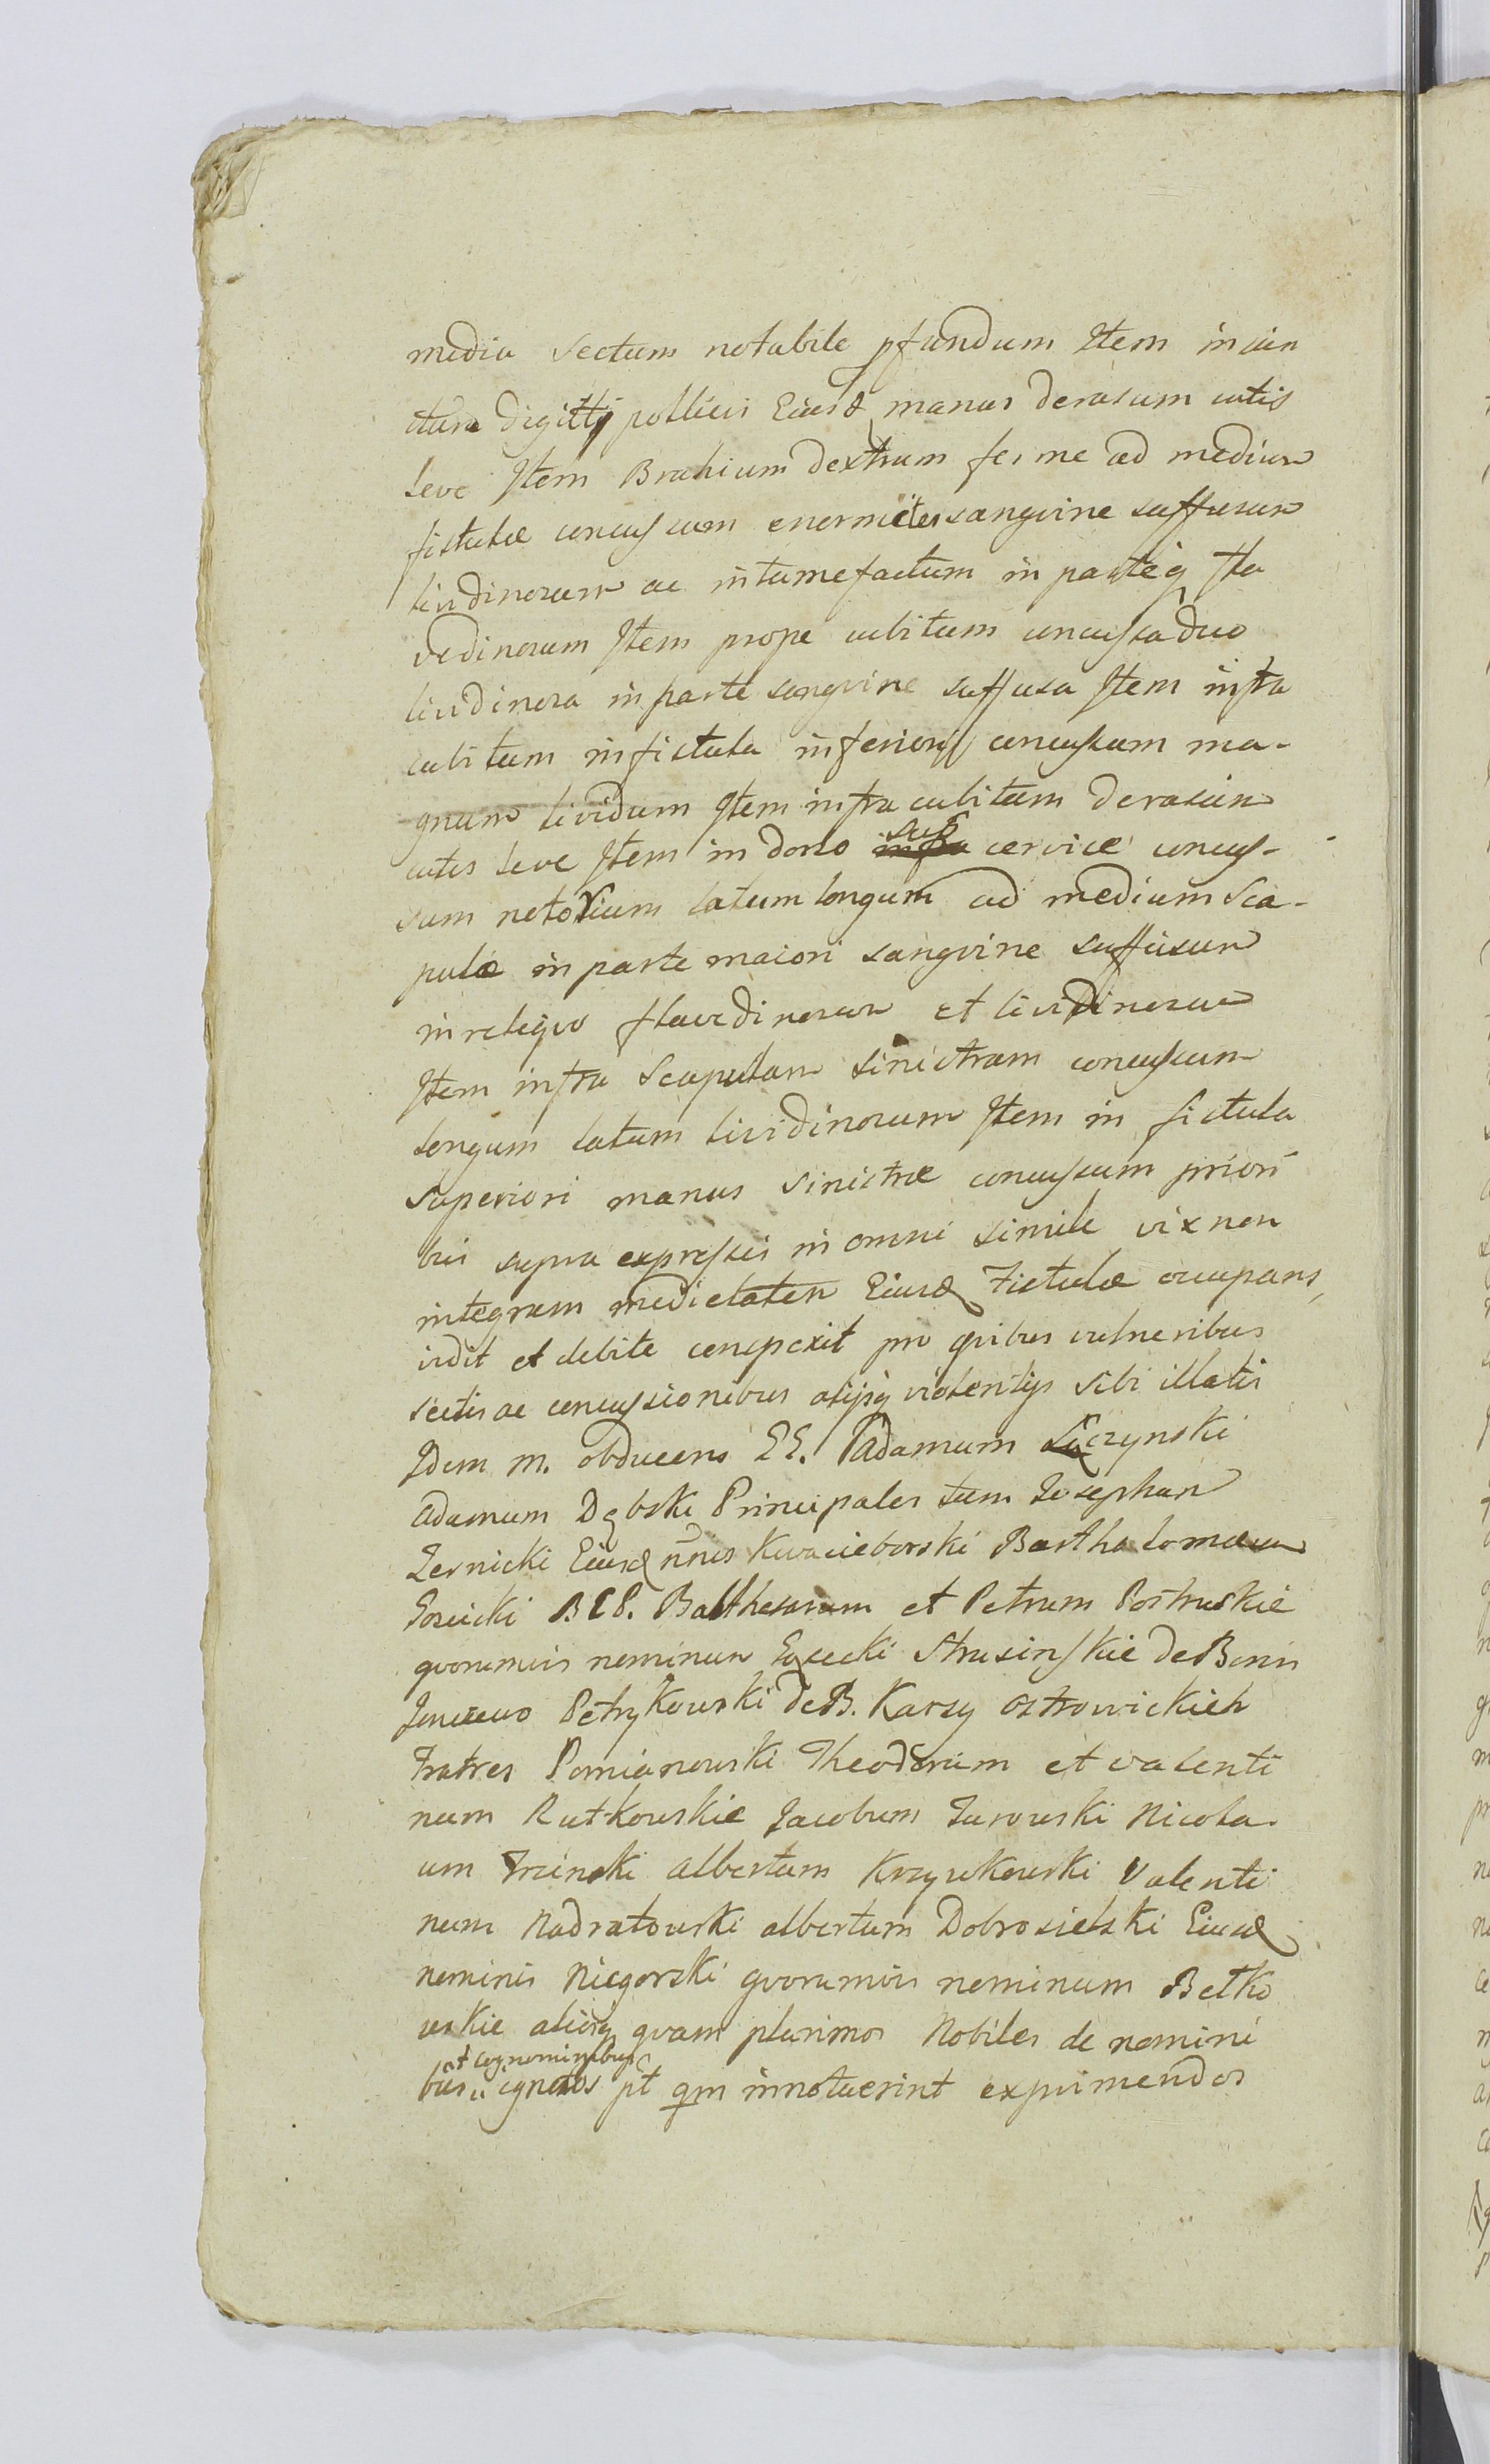 media sectum notabile pfundum Item in iun
ctura digitti pollicis Eiusd manus derasum cutis
leve Item Brahium dextrum ferme ad medium
fistulæ concussum enormiter sangvine suffusum
lividinosum ac intumefactum in parteq fla
vedinosum Item prope cubitum concussa duo
lividinosa in parte sangvine suffusa Item infra
cubitum in fistula inferiori concussum ma-
gnum lividum Item infra cubitum derasum
cutis leve Item in dorso sub cervice concus-
sum notorium latum longum ad medium sca-
pulæ in parte maiori sangvine suffusum
in reliqvo flavedinosum et lividinosum
Item infra Scapulam sinistram concussum
longum latum lividinosum Item in fistula
superiori manus sinistræ concussum priori
bus supra expressis in omni simile vix non
integram medietatem Eiusd Fistulæ occupans,
vidit et debite conspexit pro qvibus vulneribus
sectis ac concussionibus alijsq violentijs sibi illatis
Idem m. obducens GG. Adamum Łączynski
Adamum Dębski Principales tum Josephum
Zernicki Eiusd nnis Kwacieborski Bartholomæum
Gosicki Balthesarum et Petrum Postruskie
qvorumvis nominum Gąsecki Strusinskie de Bonis
Petrykowski de B. Karsy Ostrowickich
Fratres Pomianowski Theodorum et Valenti
num Rutkowskie Jacobum Jurowski Nicola-
um Trzinski Albertum Krzywkowski Valenti
num Nadratowski Albertum Dobrosielski Eiusd
nominis Niegorski qvorumvis nominum Betko
wskie aliosq qvam plurimos Nobiles de nomini
bus et cognominibus ignotos pt qm innotuerint exprimendos